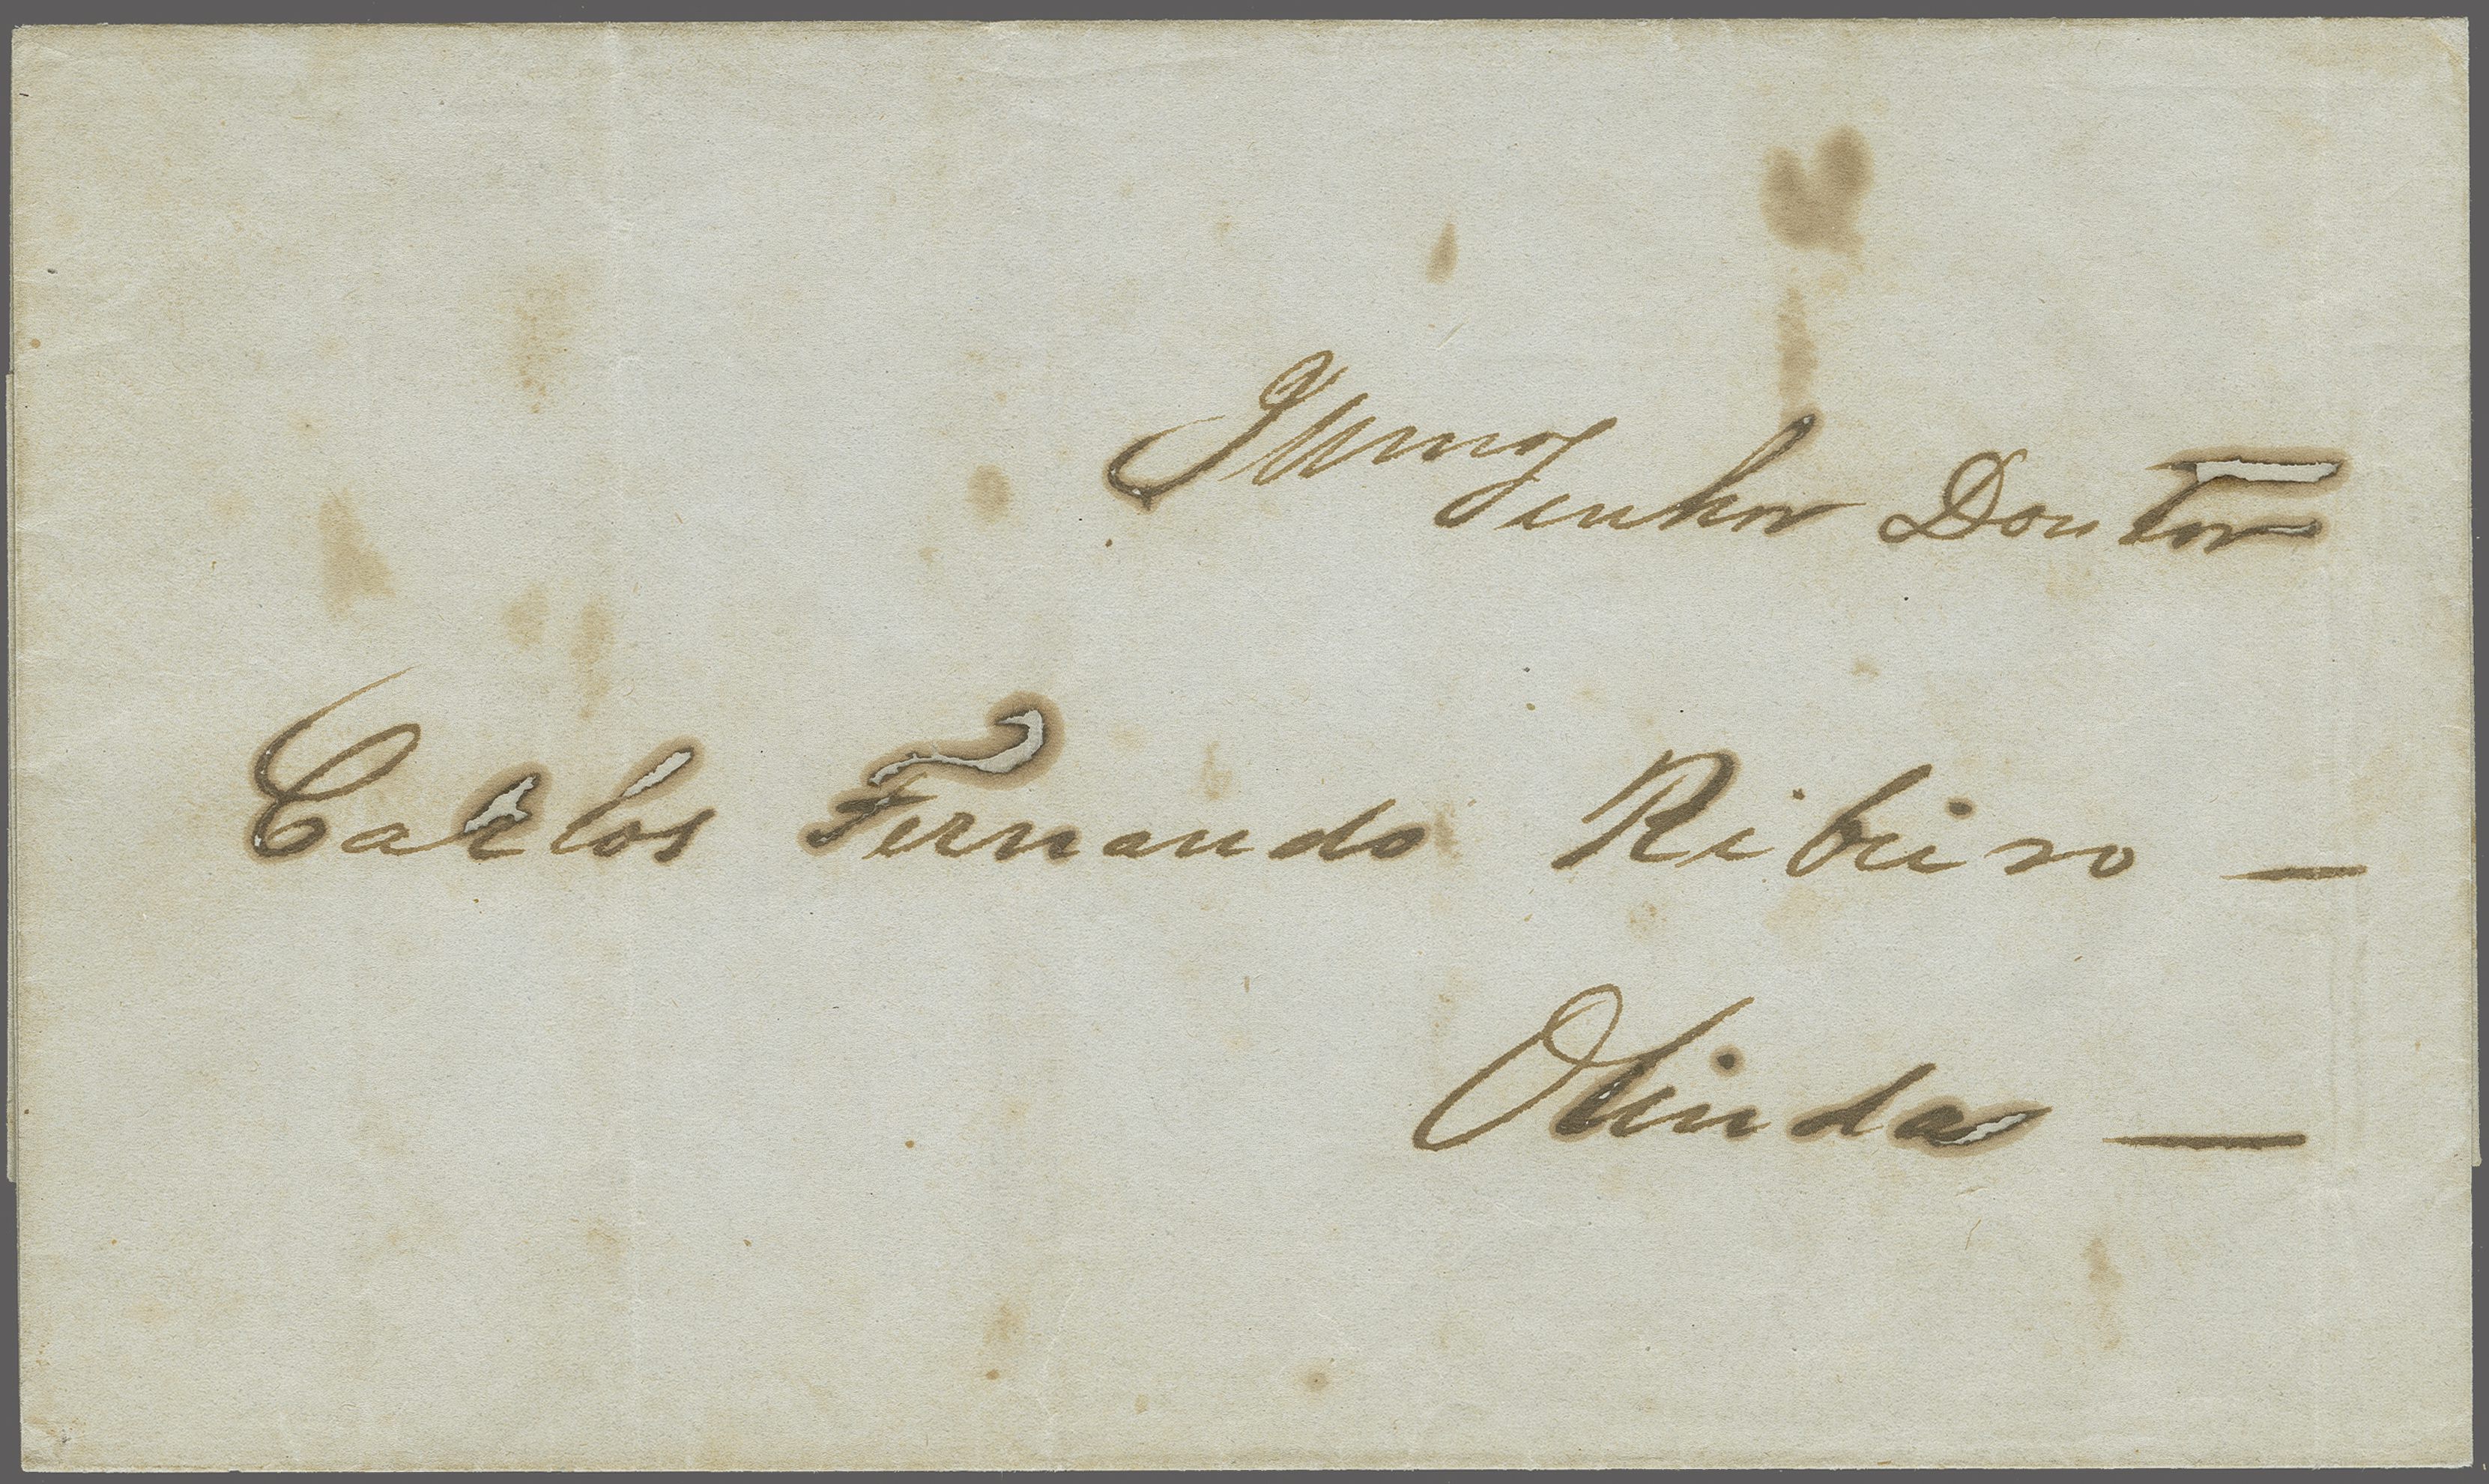 Illmo
Senhor Doutor
Carlos Fernando Ribeiro —
Olinda —